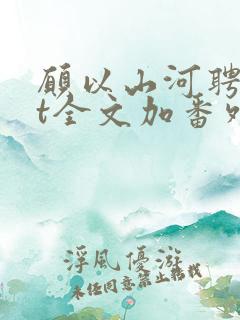 願以山河聘
t全文加番外
浮風優游
未经同意禁止转载